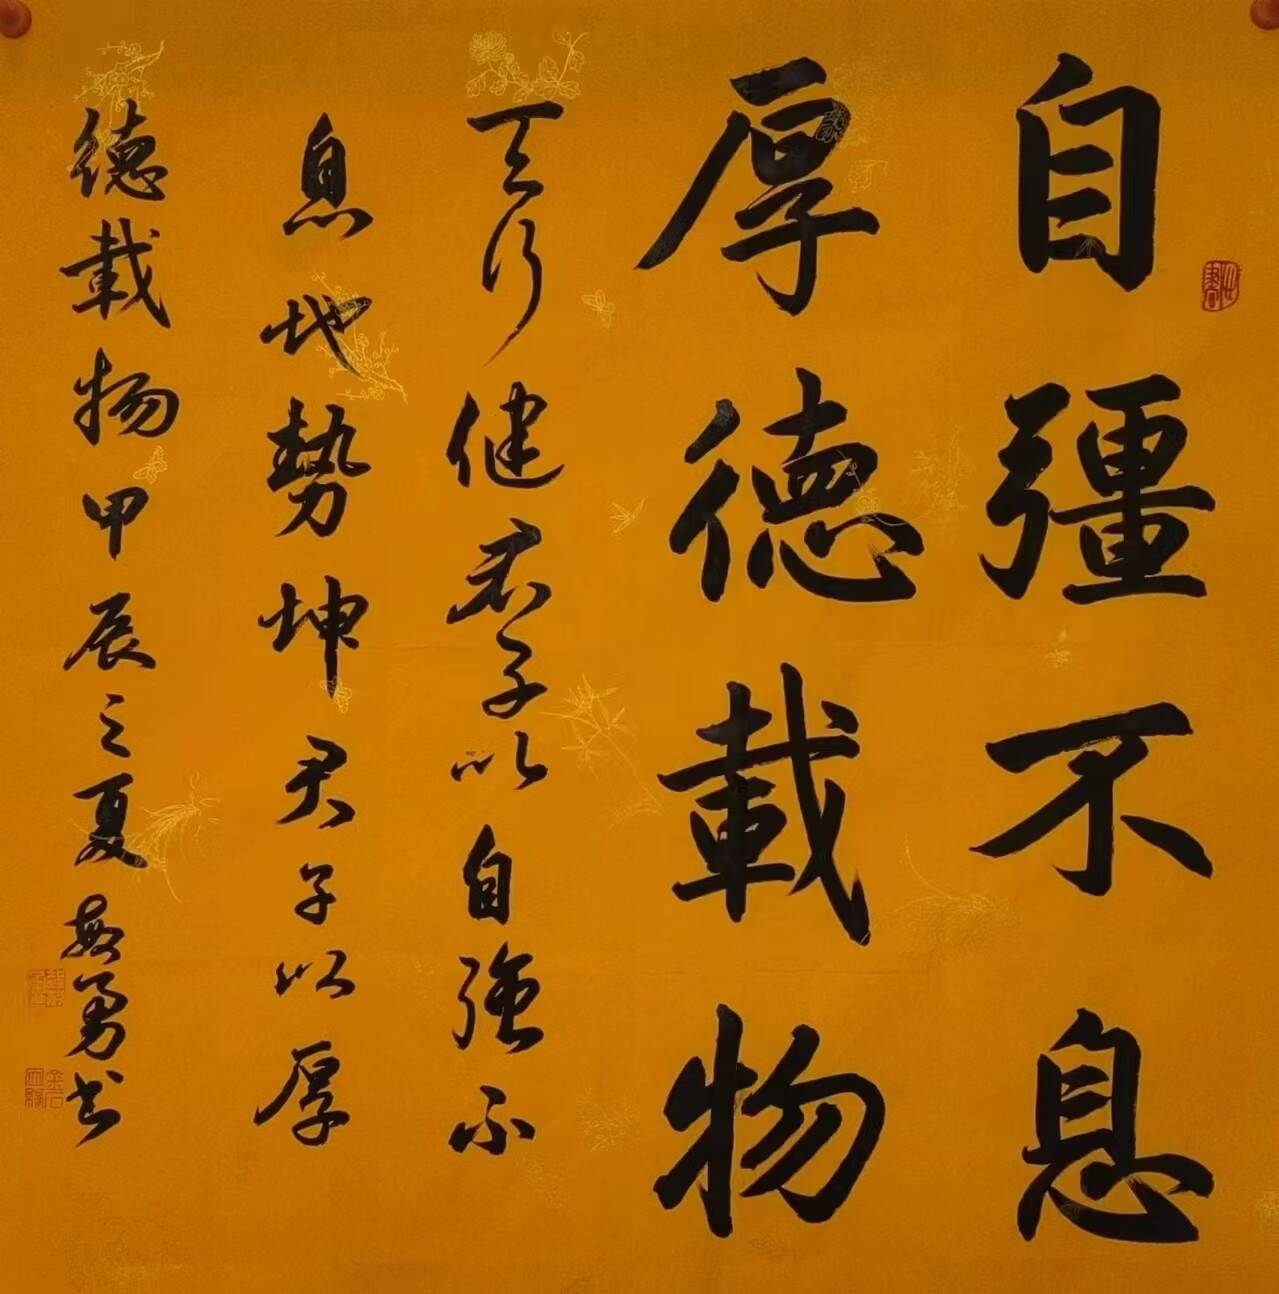 自彊不息
厚德載物
天行健君子以自強不
息地勢坤君子以厚
德載物甲辰之夏勇书